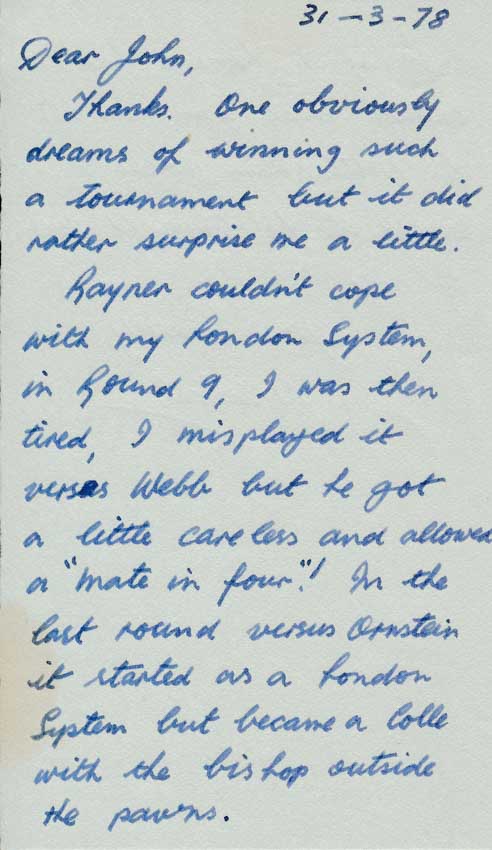 31-3-78
Dear John,
Thanks. One obviously
dreams of winning such
a tournament but it did
rather surprise me a little.
Rayner couldn't cope
with my London System,
in Round 9, I was then
tired, I misplayed it
versus Webb but he got
a little careless and allowed
a "mate in four"! In the
last round versus Ornstein
it started as a London
System but became a Colle
with the bishop outside
the pawns.